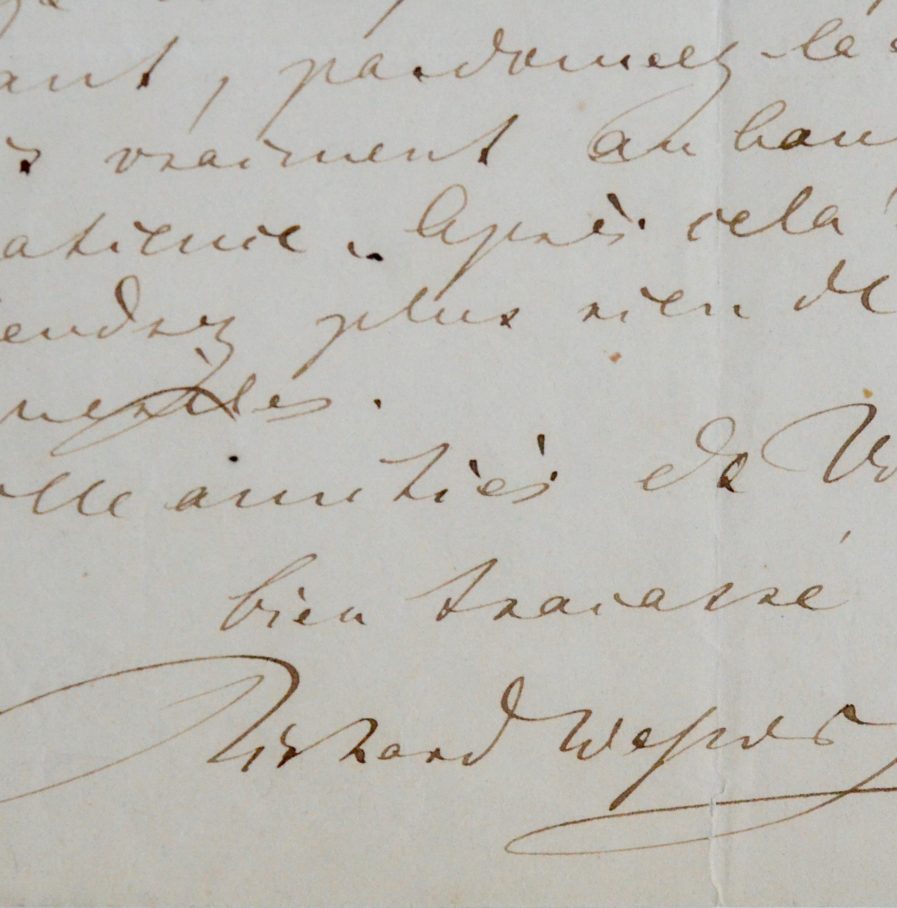 ant, pardonnez-la
s vraiment au bout
atience. Après cela
iendrez plus rien de

ille amitiés de Vo
bien tracassé
Richard Wagner